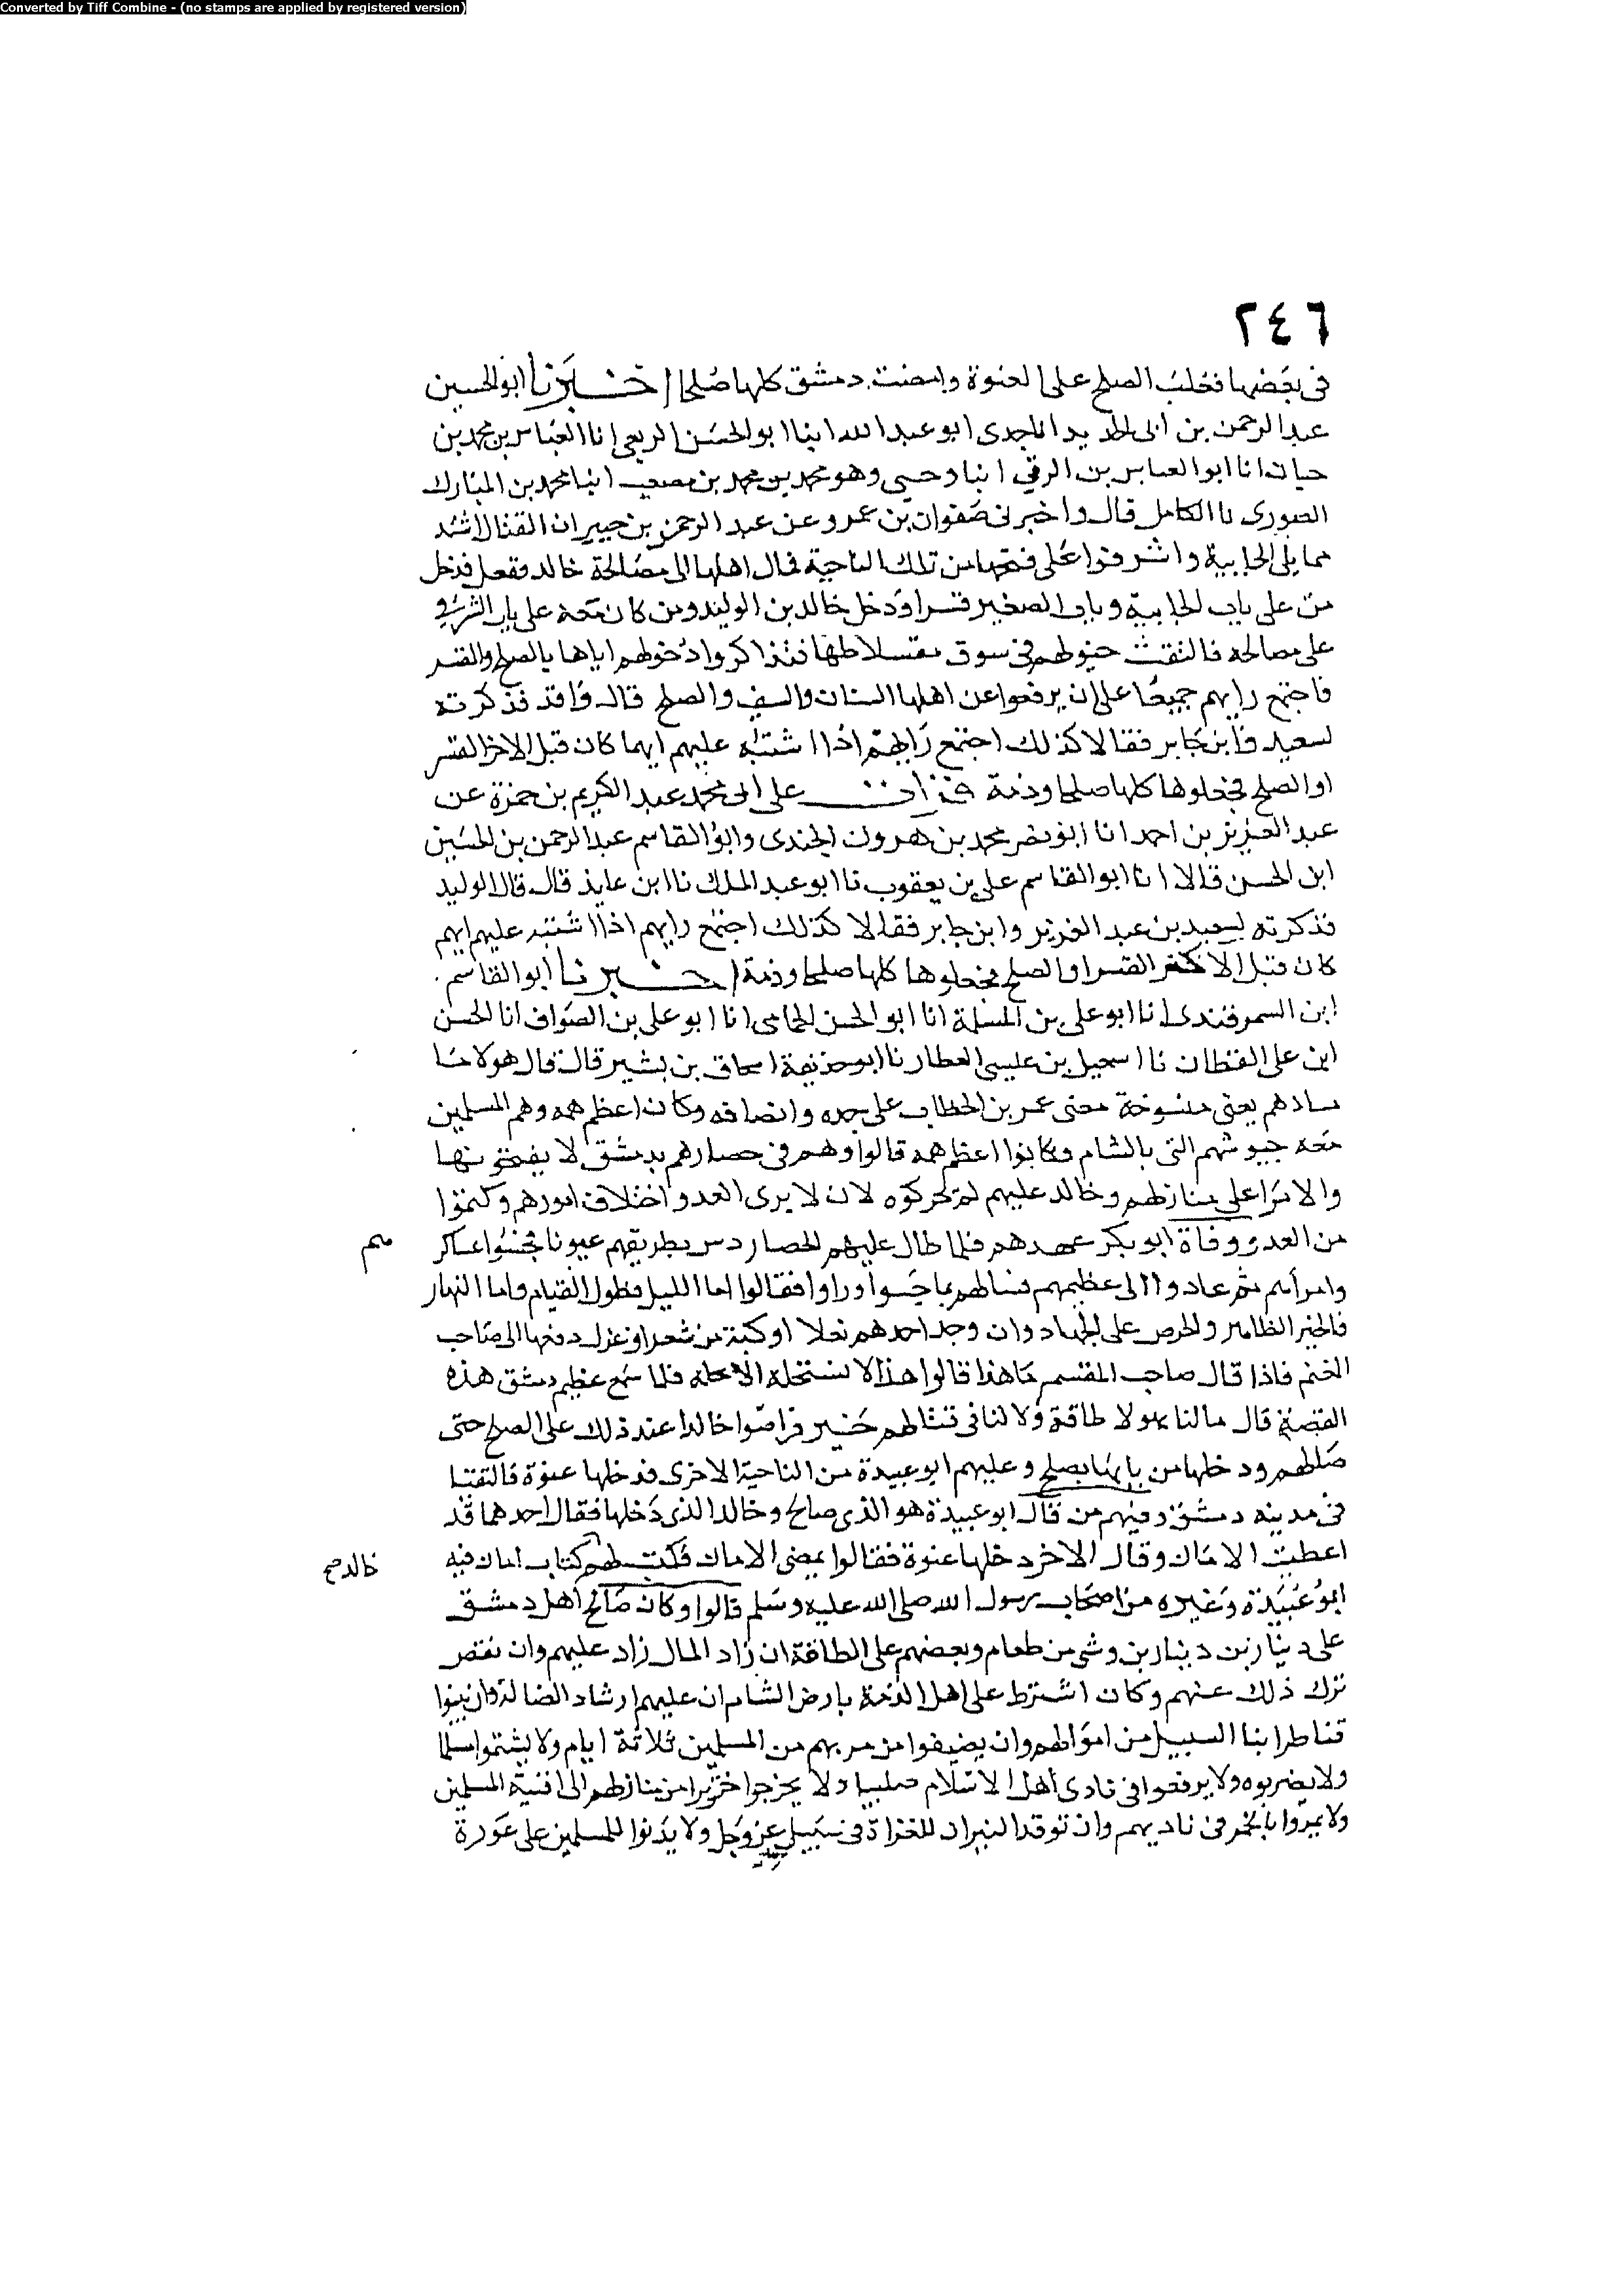 Converted by Tiff Combine - (no stamps are applied by registered version)
٢٤٦
في بعضها فغلب الصلح على العنوة وامضت دمشق كلها صلحا اخبرنا ابو الحسين
عبد الرحمن بن ابى الحديد انا جدى ابو عبد الله انبا ابو الحسن الربعى انا العباس بن محمد بن
حيان انا ابو العباس بن الرقي انبا وحسى وهو محمد بن محمد بن مصعب انبا محمد بن المبارك
الصورى نا الكامل قال واخبرنى صفوان بن عمرو عن عبد الرحمن بن جبير ان القتال اشتد
مما يلى الجابية واشرفوا على فتحها من تلك الناحية فمال اهلها الى مصالحة خالد ففعل فدخل
من على باب الجابية وباب الصغير قسرا ودخل خالد بن الوليد ومن كان معه على باب الشرقي
على مصالحه فالتقت خيولهم في سوق مقسلاطها فتذاكروا دخولهم اياها بالصلح والقسر
فاجتمع رايهم جميعا على ان يرفعوا عن اهلها السنان والسيف والصلح قال واقد فذكرته
لسعيد وابن جابر فقالا كذلك اجتمع رايهم اذا اشتبه عليهم ايهما كان قبل الاخر القسر
او الصلح فجعلوها كلها صلحا وذمة قرات على ابى محمد عبد الكريم بن حمزة عن
عبد العزيز بن احمد انا ابو نصر محمد بن هرون الجندى وابو القاسم عبد الرحمن بن الحسين
ابن الحسن قالا انا ابو القاسم على بن يعقوب نا ابو عبد الملك نا ابن عايذ قال قال الوليد
فذكرته لسعيد بن عبد العزيز وابن جابر فقالا كذلك اجتمع رايهم اذا اشتبه عليهم ايهم
كان قبل الاخر القسر او الصلح فجعلوها كلها صلحا وذمة اخبرنا ابو القاسم
ابن السمرقندى انا ابو على بن المسلمة انا ابو الحسن الحمامى انا ابو على بن الصواف انا الحسن
ابن على القطان نا اسمعيل بن عليسى العطار نا ابو حذيفة اسحاق بن بشير قال قال هولا
باسنادهم يعنى معنى عمر بن الخطاب على جده وانصافه وكان اعظم همه وهم المسلمين
معه جيوشهم التى بالشام وكانوا اعظم همه قالوا وهم في حصارهم بدمشق لا يفتحونها
والامرا على منازلهم وخالد عليهم لم يحركوه لان لا يرى العدو اختلاف امورهم وكتموا
من العدو وفاة ابو بكر عهدهم فلما طال عليهم الحصار دس بطريقهم عيونا فجسوا عساكر
وامراهم ثم عادوا الى عظيمهم فسالهم عما جسوا وراوا فقالوا اما الليل فطول القيام واما النهار
فالخير الظاهر والحرص على الجهاد وان وجد احدهم نعلا او كبة من شعر او غزل دفعها الى صاحب
الغنم فاذا قال صاحب المقسم ما هذا قالوا هذا لا نستحله الا بحله فلما سمع عظيم دمشق هذه
القصة قال مالنا بهولا طاقة ولا لنا في قتالهم خير فراضوا خالدا عند ذلك على الصلح حتى
صالحهم ودخلها من بابها بصلح وعليهم ابو عبيدة من الناحية الاخرى فدخلها عنوة فالتقتا
في مدينه دمشق وفيهم من قال ابو عبيدة هو الذى صالح وخالد الذى دخلها فقال احدهما قد
اعطيت الامان وقال الاخر دخلها عنوة فقالوا يمضى الامان فكتب لهم كتاب امان فيه
خالد صح
ابو عبيدة وغيره من اصحاب رسول الله صلى الله عليه وسلم قالوا وكان صالح اهل دمشق
على دينارين دينارين وشى من طعام وبعضهم على الطاقة ان زاد المال زاد عليهم وان نقص
ترك ذلك عنهم وكان اشترط على اهل الذمة بارض الشام ان عليهم ارشاد الضالة وان يبنوا
قناطر ابنا السبيل من اموالهم وان يضيفوا من مر بهم من المسلمين ثلاثة ايام ولا يشتموا مسلما
ولا يضربوه ولا يرفعوا في نادى اهل الاسلام صليبا ولا يخرجوا خنزيرا من منازلهم الى افنية المسلمين
ولا يمروا بالخمر في ناديهم وان توقد النيران للغزاة في سبيل الله عز وجل ولا يدلوا للمسلمين على عورة